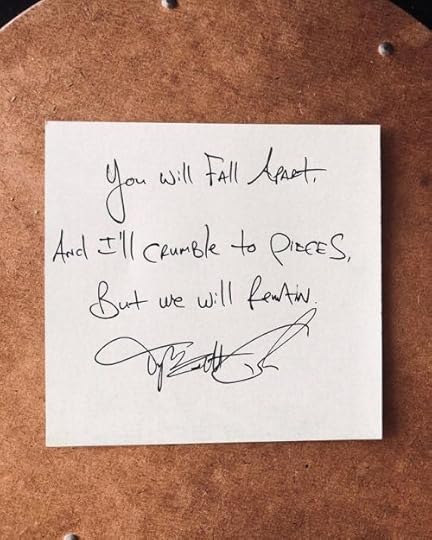 You will Fall Apart.
And I'll crumble to PIECES,
But we will Remain.